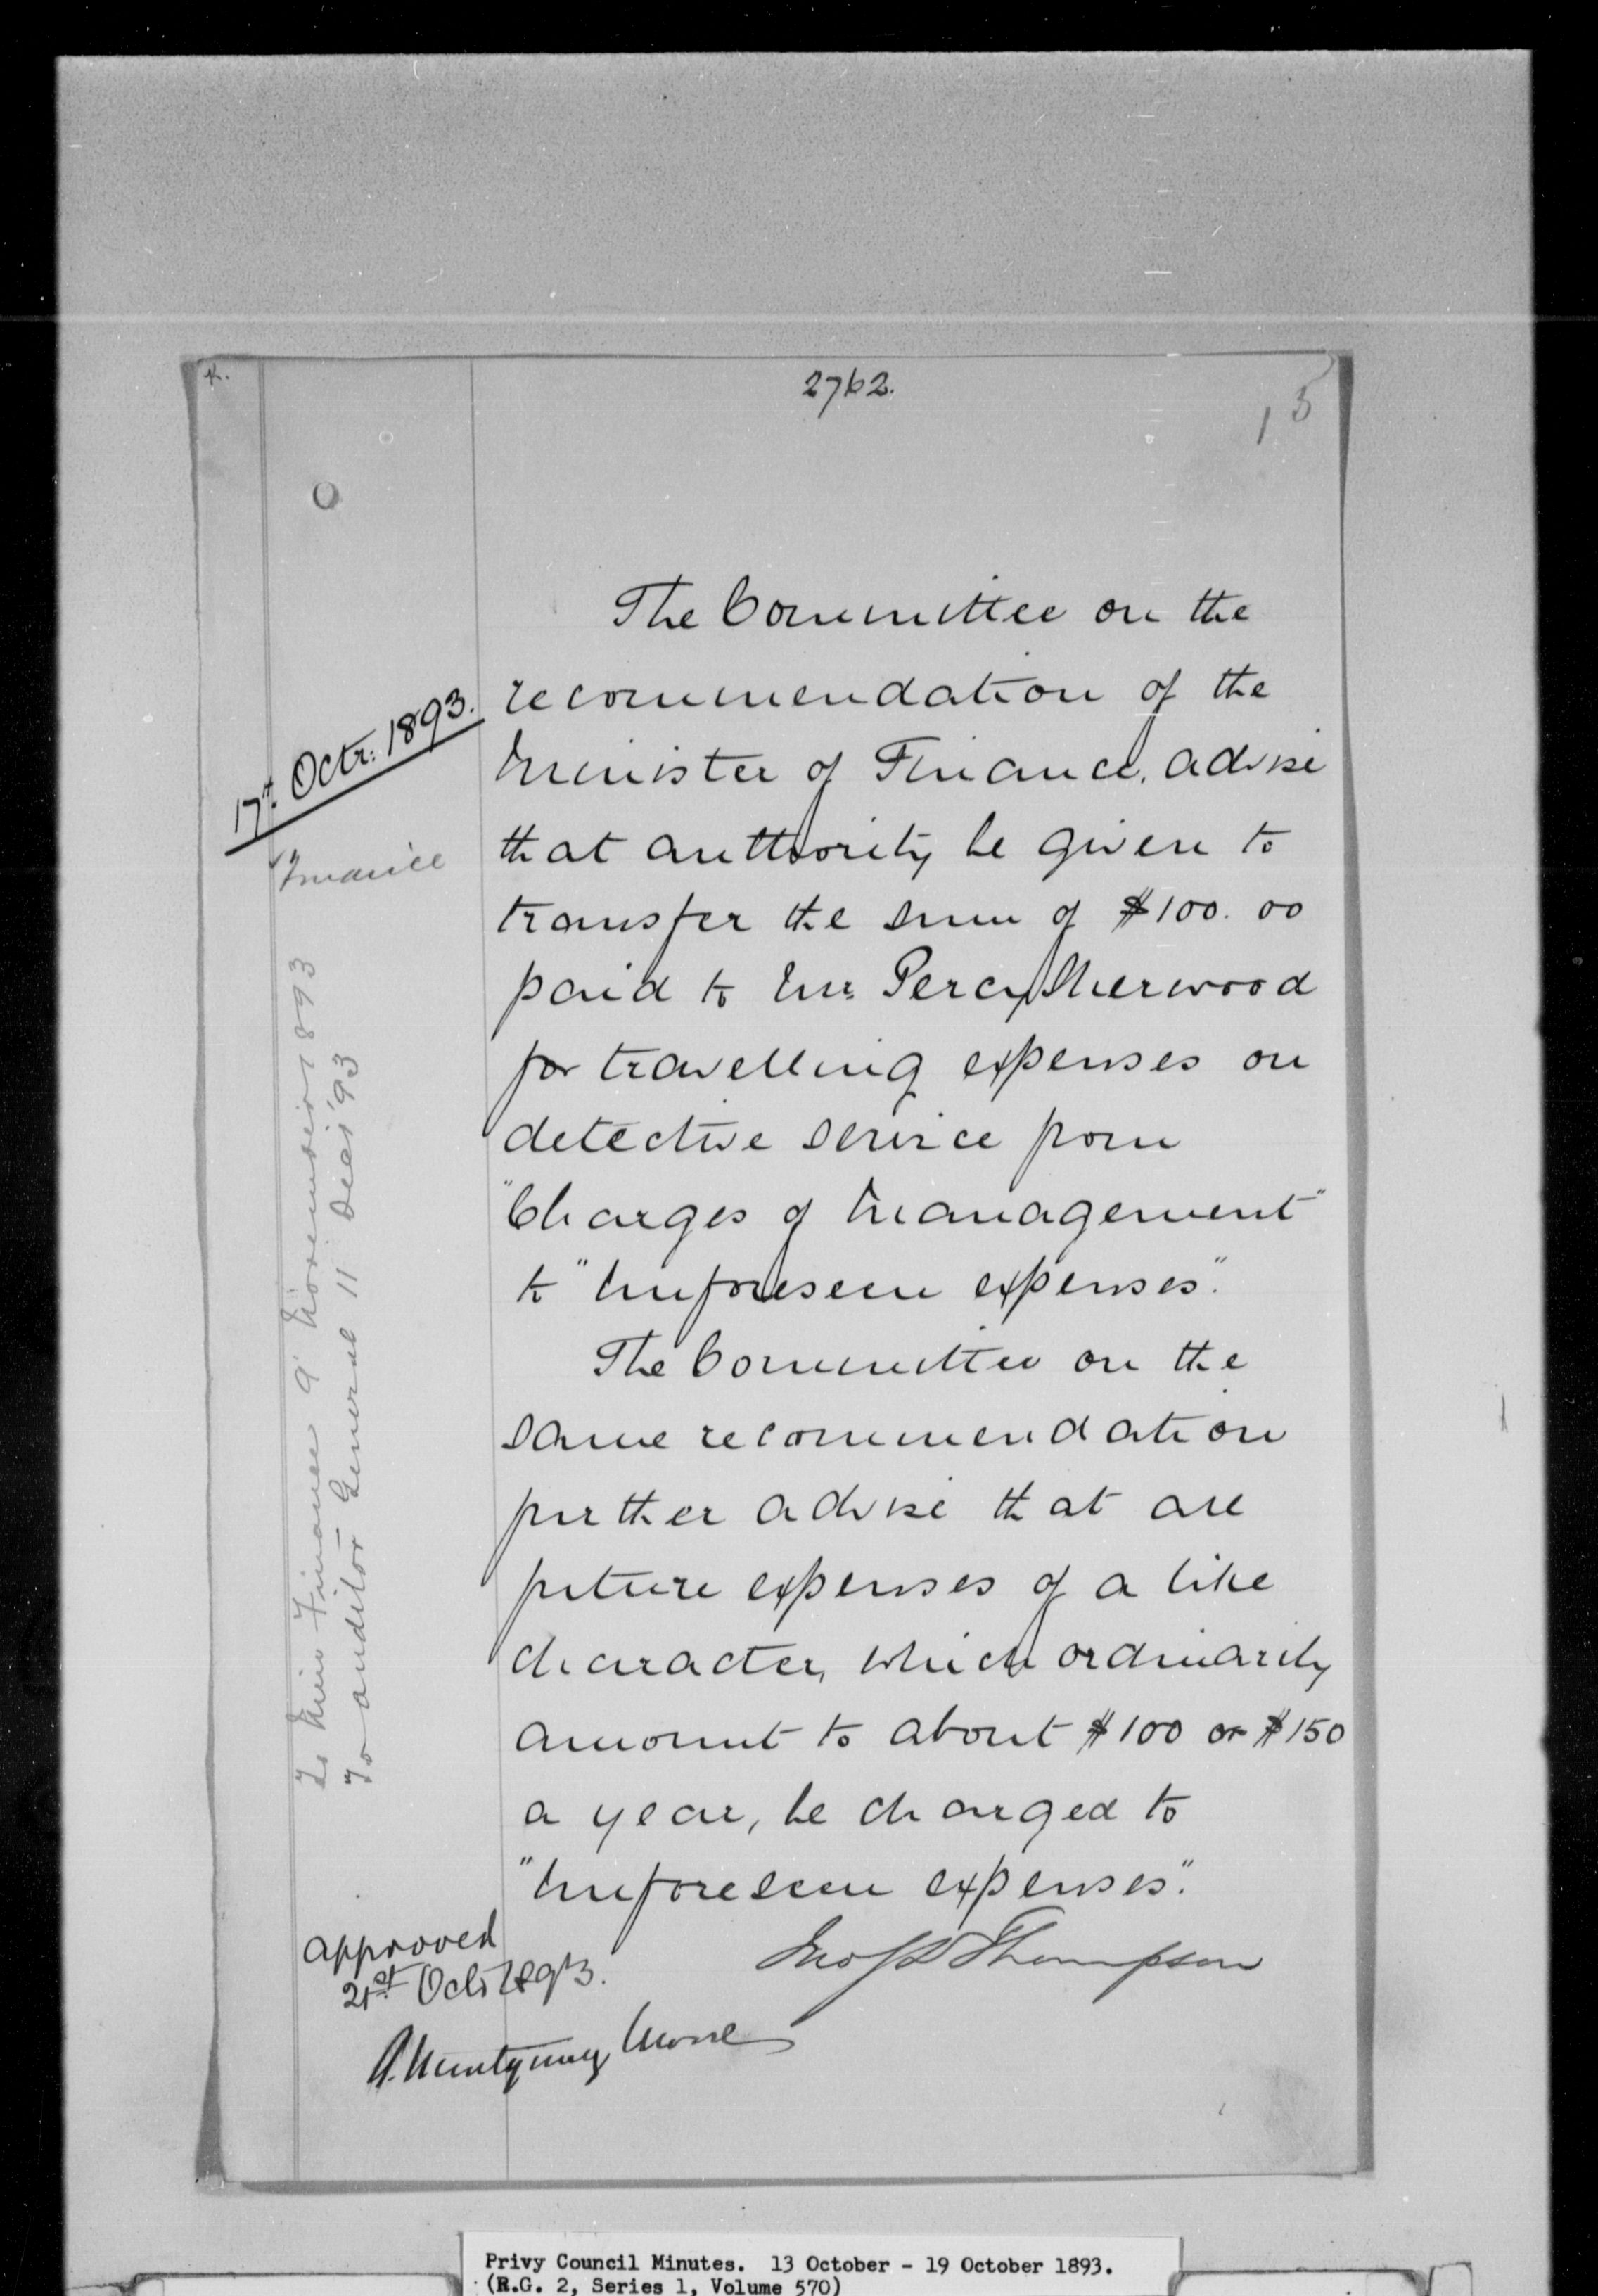 K.
2762.
15
17th Octr: 1893.
Finance
To Min Finance 9 November 1893
To Auditor General 11 Decr '93
The Committee on the
recommendation of the
Minister of Finance, advise
that authority be given to
transfer the sum of $100.00
paid to Mr. Percy Sherwood
for travelling expenses on
detective service from
"Charges of Management"
to "Unforeseen expenses".
The Committee on the
same recommendation
further advise that all
future expenses of a like
character, which ordinarily
amount to about $100 or $150
a year, be charged to
"Unforeseen expenses".
Jno S D Thompson
approved
21st Octr 1893.
A. Montgomery Moore
Privy Council Minutes. 13 October - 19 October 1893.
(R.G. 2, Series 1, Volume 570)